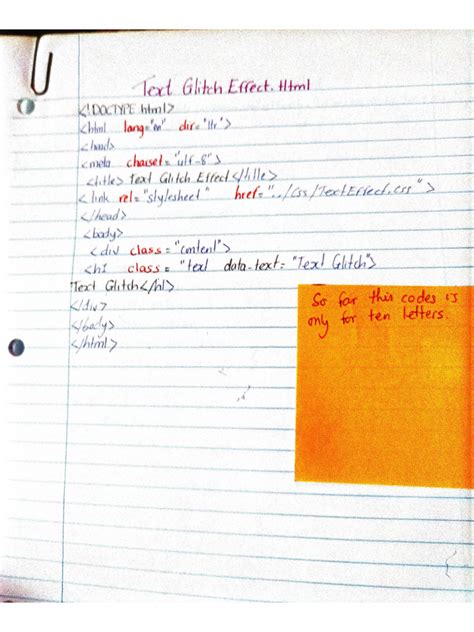 Text Glitch Effect. Html
<!DOCTYPE html>
<html lang="en" dir="ltr">
<head>
<meta charset="utf-8">
<title> Text Glitch Effect </title>
<link rel="stylesheet" href="../Css/TextEffect.css">
</head>
<body>
<div class="content">
<h1 class="text data-text="Text Glitch">
Text Glitch</h1>
</div>
</body>
</html>
So far this codes is
only for ten letters.